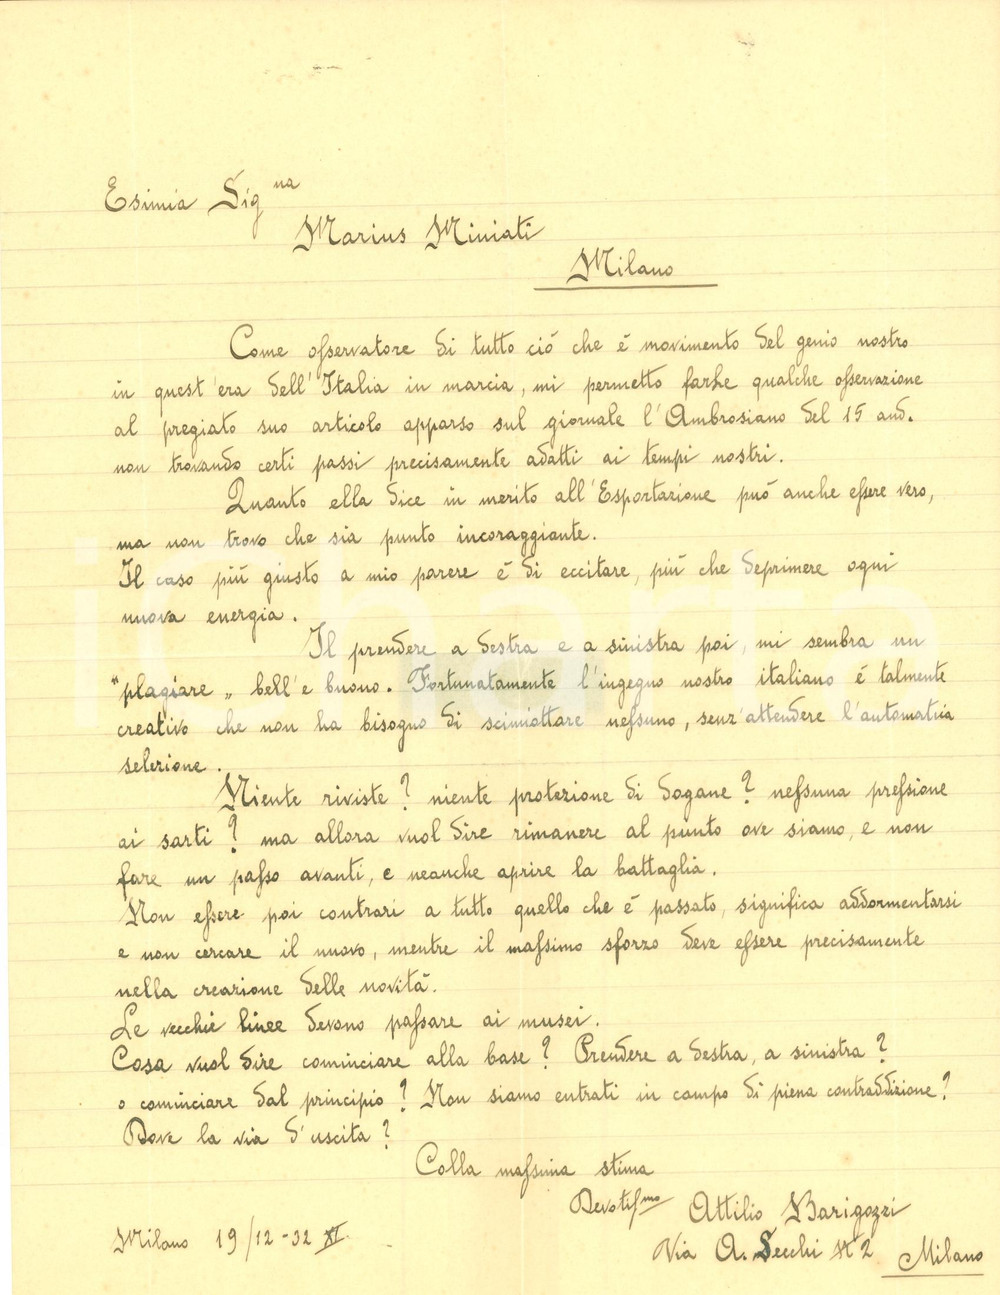 Esimia Sig.na
Marius Miniati
Milano
Come osservatore di tutto ciò che è movimento del genio nostro
in quest'era dell'Italia in marcia, mi permetto farLe qualche osservazione
al pregiato suo articolo apparso sul giornale l'Ambrosiano del 15 and.
non trovando certi passi precisamente adatti ai tempi nostri.
Quanto ella dice in merito all'Esportazione può anche essere vero,
ma non trovo che sia punto incoraggiante.
Il caso più giusto a mio parere è di eccitare, più che deprimere ogni
nuova energia.
Il prendere a destra e a sinistra poi, mi sembra un
"plagiare" bell'e buono. Fortunatamente l'ingegno nostro italiano è talmente
creativo che non ha bisogno di scimiottare nessuno, senz'attendere l'automatica
selezione.
Niente riviste? niente protezione di dogane? nessuna pressione
ai sarti? ma allora vuol dire rimanere al punto ove siamo, e non
fare un passo avanti, e neanche aprire la battaglia.
Non essere poi contrari a tutto quello che è passato, significa addormentarsi
e non cercare il nuovo, mentre il massimo sforzo deve essere precisamente
nella creazione delle novità.
Le vecchie linee devono passare ai musei.
Cosa vuol dire cominciare alla base? Prendere a destra, a sinistra?
o cominciare dal principio? Non siamo entrati in campo di piena contraddizione?
Dove la via d'uscita?
Colla massima stima
Devotissmo Attilio Barigozzi
Milano 19/12-32 XI
Via A. Secchi N 2 Milano